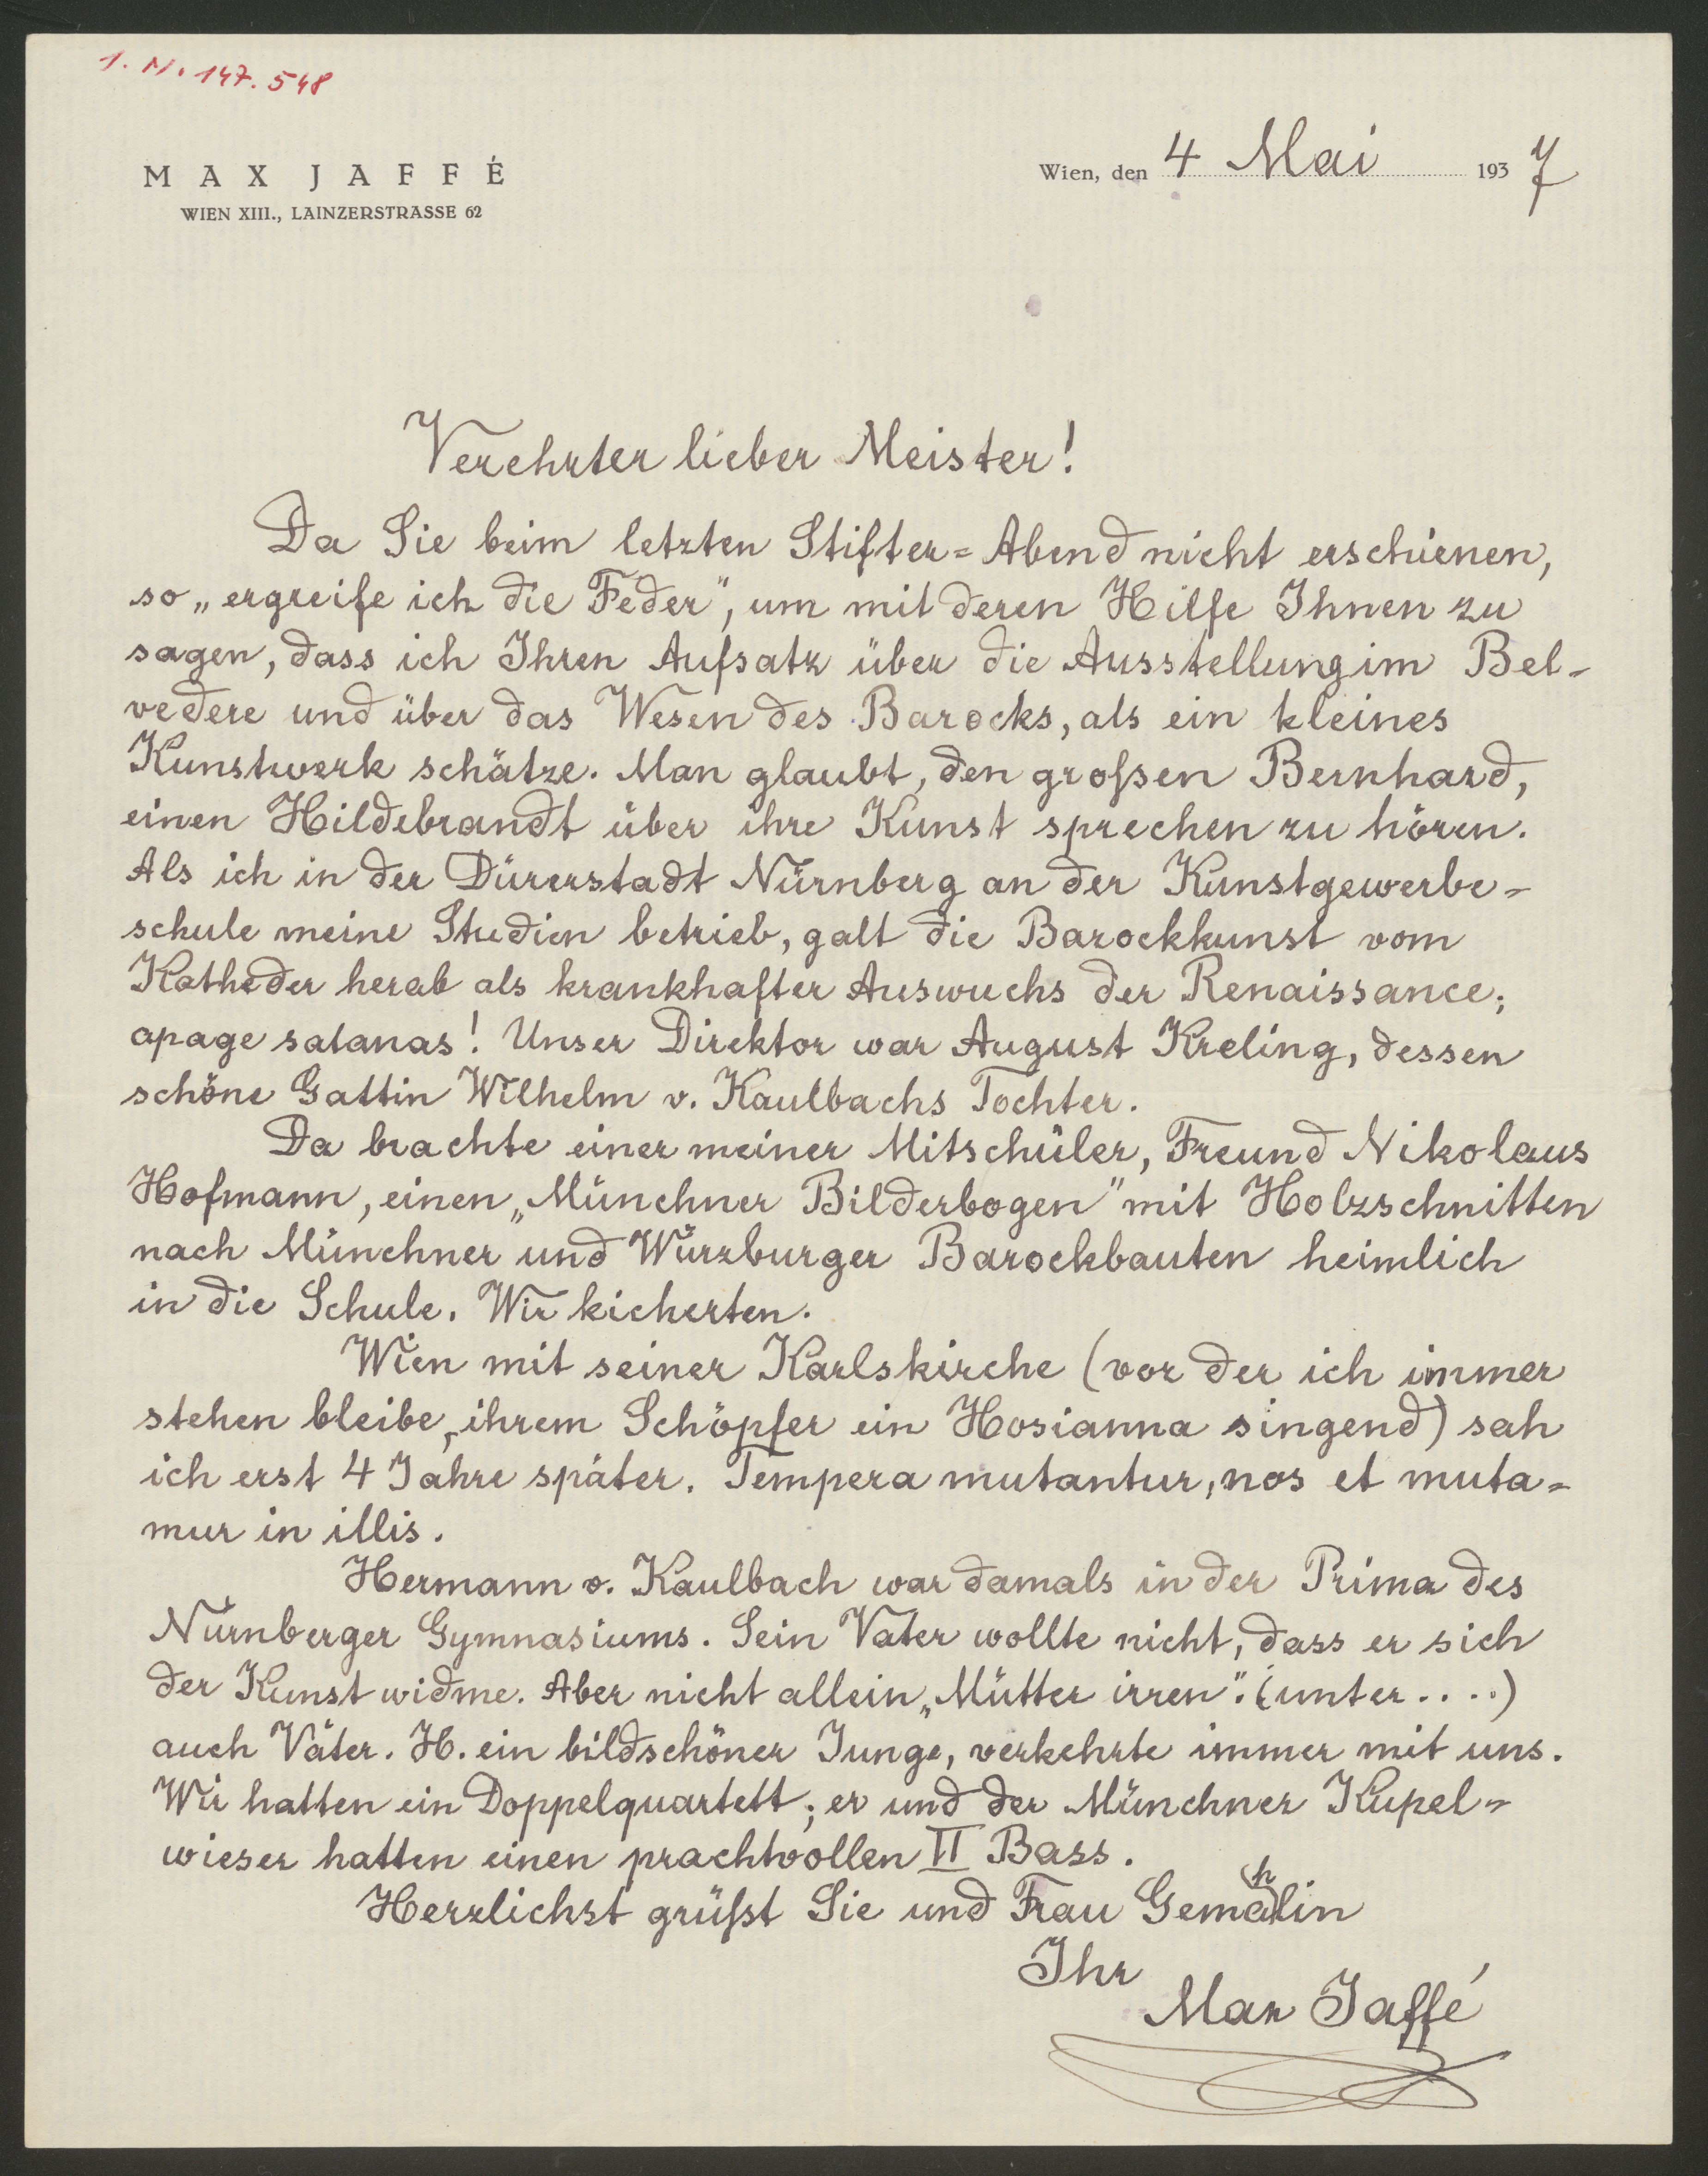 I. N. 147.548
MAX JAFFÉ
WIEN XIII., LAINZERSTRASSE 62
Wien, den 4 Mai 1937
Verehrter lieber Meister!
Da Sie beim letzten Stifter=Abend nicht erschienen,
so „ergreife ich die Feder", um mit deren Hilfe Ihnen zu
sagen, dass ich Ihren Aufsatz über die Ausstellung im Bel-
vedere und über das Wesen des Barocks, als ein kleines
Kunstwerk schätze. Man glaubt, den großen Bernhard,
einen Hildebrandt über ihre Kunst sprechen zu hören.
Als ich in der Dürerstadt Nürnberg an der Kunstgewerbe=
schule meine Studien betrieb, galt die Barockkunst vom
Katheder herab als krankhafter Auswuchs der Renaissance;
apage satanas! Unser Direktor war August Kreling, dessen
schöne Gattin Wilhelm v. Kaulbachs Tochter.
Da brachte einer meiner Mitschüler, Freund Nikolaus
Hofmann, einen „Münchner Bilderbogen" mit Holzschnitten
nach Münchner und Würzburger Barockbauten heimlich
in die Schule. Wir kicherten.
Wien mit seiner Karlskirche (vor der ich immer
stehen bleibe, ihrem Schöpfer ein Hosianna singend) sah
ich erst 4 Jahre später. Tempera mutantur, nos et muta=
mur in illis.
Hermann v. Kaulbach war damals in der Prima des
Nürnberger Gymnasiums. Sein Vater wollte nicht, dass er sich
der Kunst widme. Aber nicht allein „Mütter irren". (unter....)
auch Väter. H. ein bildschöner Junge, verkehrte immer mit uns.
Wir hatten ein Doppelquartett; er und der Münchner Kupel=
wieser hatten einen prachtvollen II Bass.
Herzlichst grüßt Sie und Frau Gemahlin
Ihr
Max Jaffé